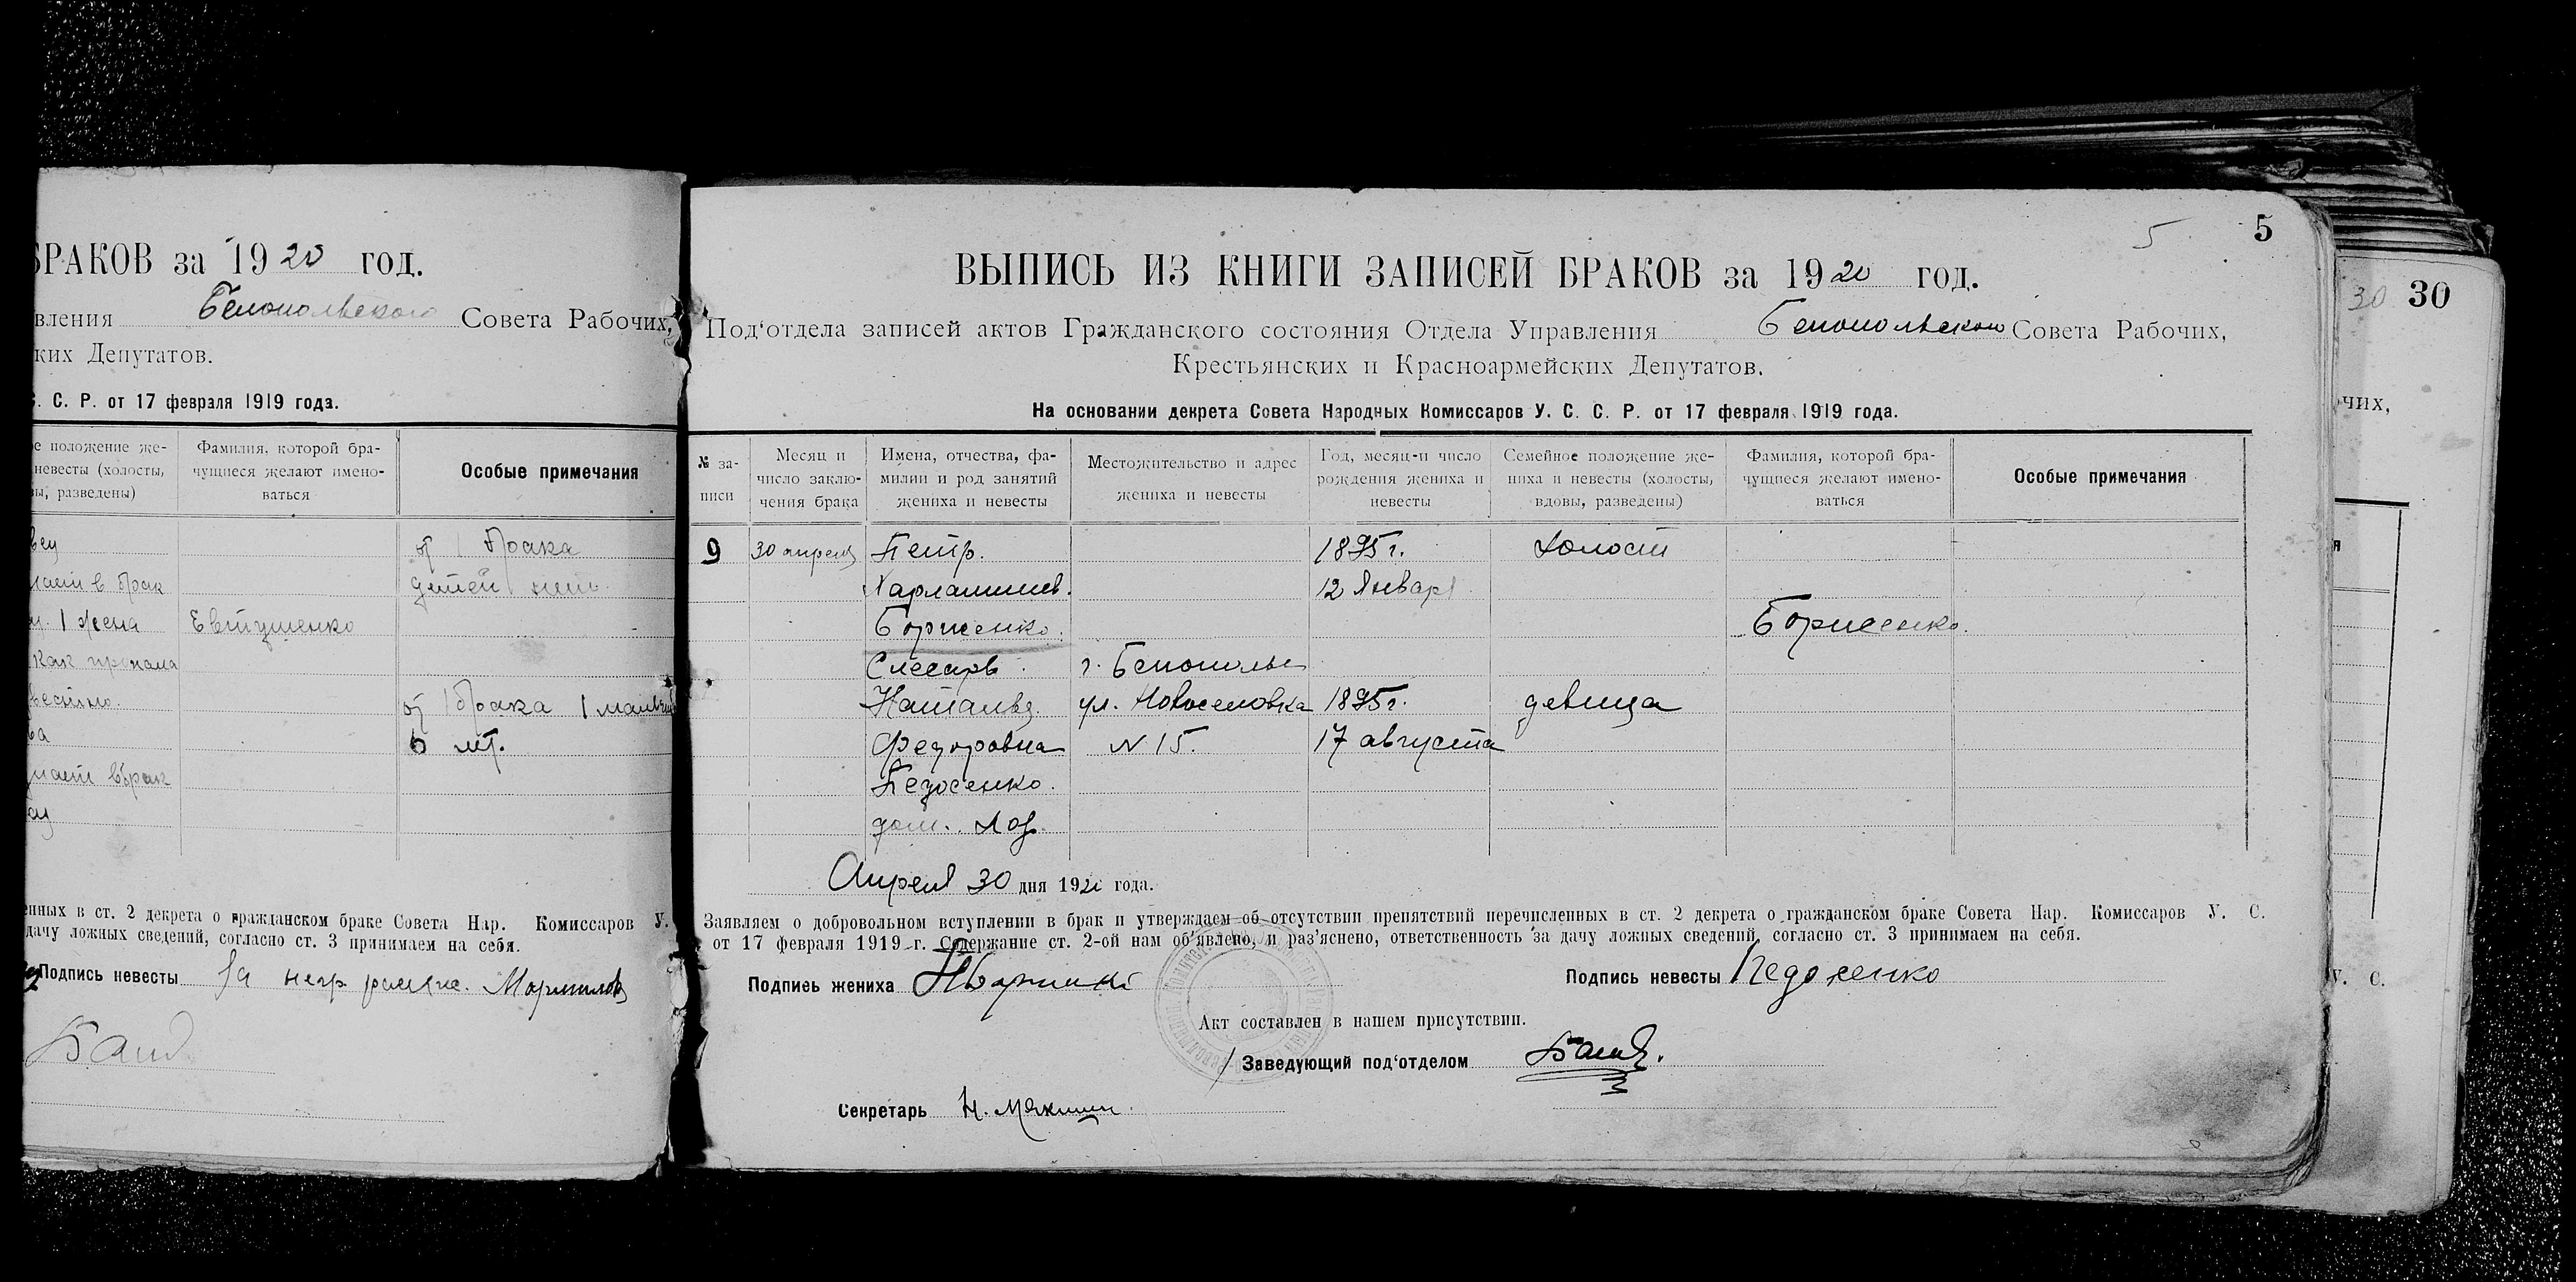 БРАКОВ за 1920 год.
вления Белопольского Совета Рабочих,
ких Депутатов.
С. С. Р. от 17 февраля 1919 года.
ое положение же-
невесты (холосты,
вы, разведены)
Фамилия, которой бра-
чущиеся желают имено-
ваться
Особые примечания
от 1 брака
детей нет.
1 жена Евтушенко
от 1 брака 1 мальчик
6 лет.
енных в ст. 2 декрета о гражданском браке Совета Нар. Комиссаров У.
дачу ложных сведений, согласно ст. 3 принимаем на себя.
Подпись невесты За негр.
5 5
ВЫПИСЬ ИЗ КНИГИ ЗАПИСЕЙ БРАКОВ за 1920 год.
Под'отдела записей актов Гражданского состояния Отдела Управления Белопольского Совета Рабочих,
Крестьянских и Красноармейских Депутатов.
На основании декрета Совета Народных Комиссаров У. С. С. Р. от 17 февраля 1919 года.
№ за-
писи
Месяц и
число заклю-
чения брака
Имена, отчества, фа-
милии и род занятий
жениха и невесты
Местожительство и адрес
жениха и невесты
Год, месяц и число
рождения жениха и
невесты
Семейное положение же-
ниха и невесты (холосты,
вдовы, разведены)
Фамилия, которой бра-
чущиеся желают имено-
ваться
Особые примечания
9 30 апреля Петр. 1895 г. Холост
Харлампиев. 12 Января
Борисенко. Борисенко.
Слесарь. г. Белополье
Наталья ул. Новоселовка 1895 г. девица
Федоровна N 15. 17 августа
Педосенко.
дом. хоз.
Апреля 30 дня 1920 года.
Заявляем о добровольном вступлении в брак и утверждаем об отсутствии препятствий перечисленных в ст. 2 декрета о гражданском браке Совета Нар. Комиссаров У. С.
от 17 февраля 1919 г. Содержание ст. 2-ой нам об'явлено, и раз'яснено, ответственность за дачу ложных сведений, согласно ст. 3 принимаем на себя.
Подпись жениха
Подпись невесты Педосенко
Акт составлен в нашем присутствии.
Заведующий под'отделом
Секретарь
30 30
чих,
У. С.